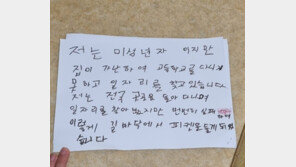 저는 미성년자 이지만
집이 가난하여 고등학교를 다니지
못하고 일자리를 찾고있습니다
저는 전국 곳곳을 돌아다니며
일자리를 찾아봤지만 번번히 실패하여
이렇게 길바닥에서 피켓을 들게 되었
습니다